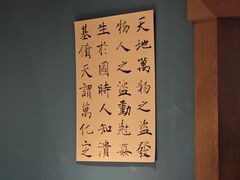 天地萬物之盜發
物人之盜動愈
生於國時人知潰
基脩天謂萬化定